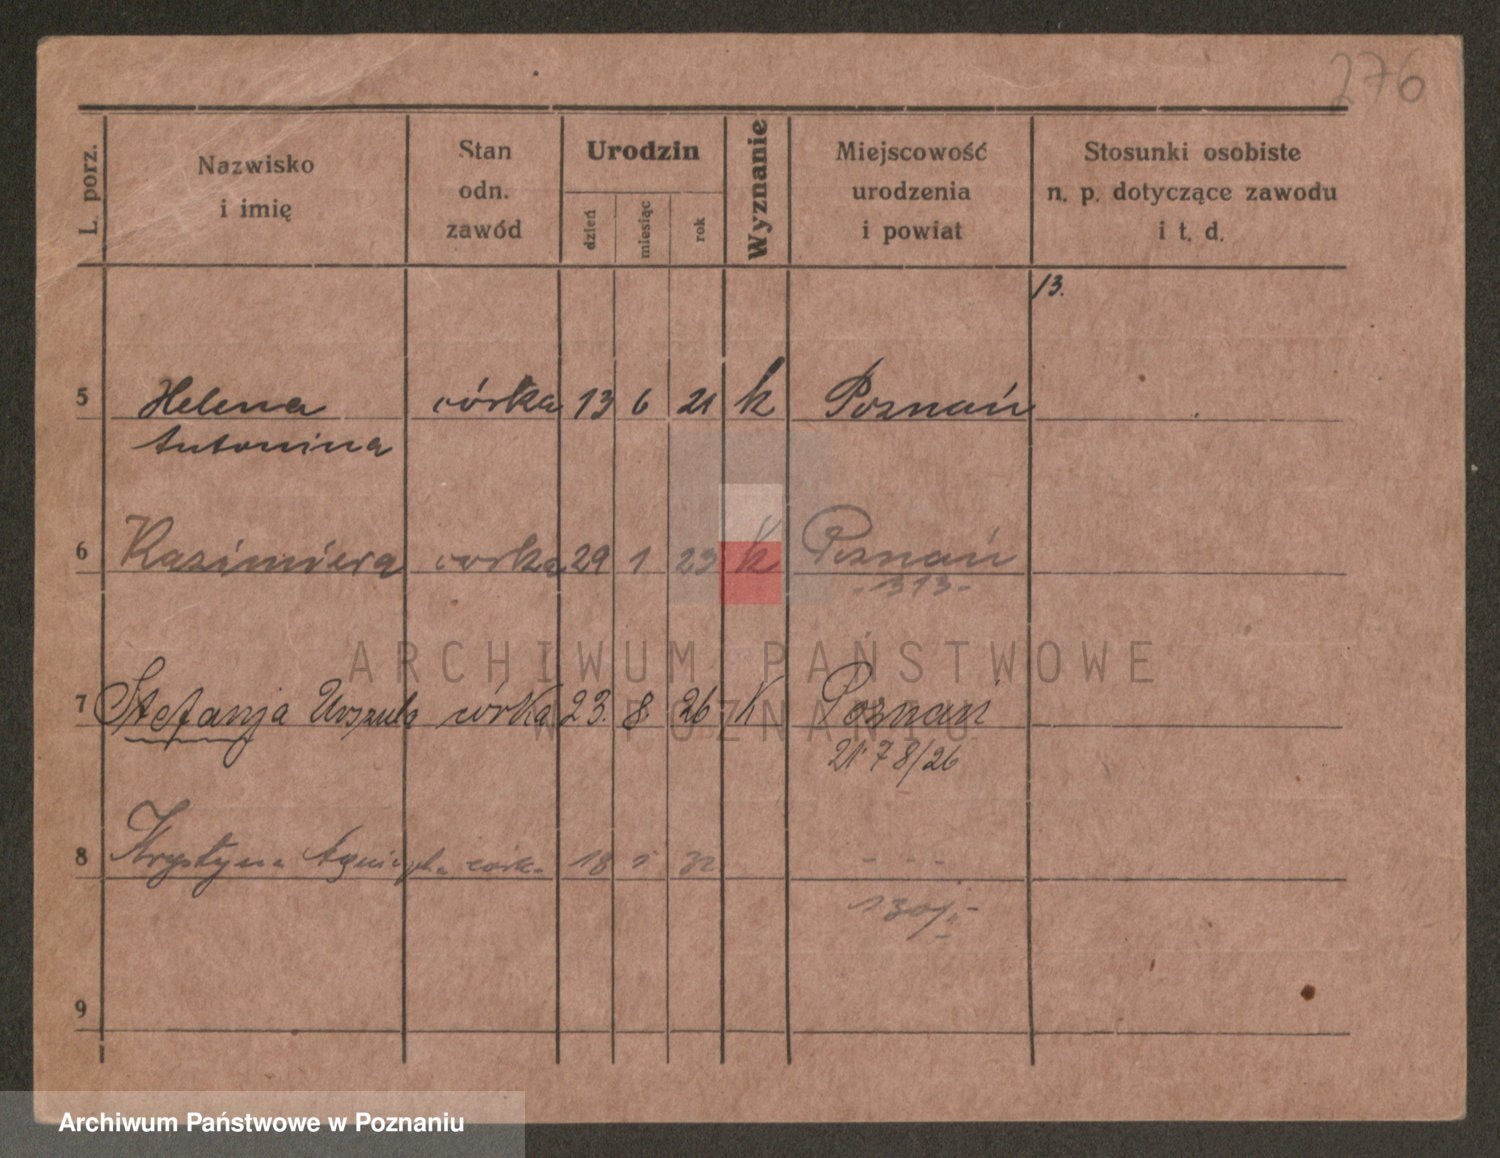 276
L. porz.
Nazwisko
i imię
Stan
odn.
zawód
Urodzin
dzień
miesiąc
rok
Wyznanie
Miejscowość
urodzenia
i powiat
Stosunki osobiste
n. p. dotyczące zawodu
i t. d.
13.
5 Helena córka 13 6 21 k Poznań
Antonina
6 Kazimiera córka 29 1 23 k Poznań
- 313 -
ARCHIWUM PAŃSTWOWE
W POZNANIU
7 Stefanja Urszula córka 23. 8. 26 K Poznań
8/26
8 Krystyna córk. 18 32 - - -
9
Archiwum Państwowe w Poznaniu